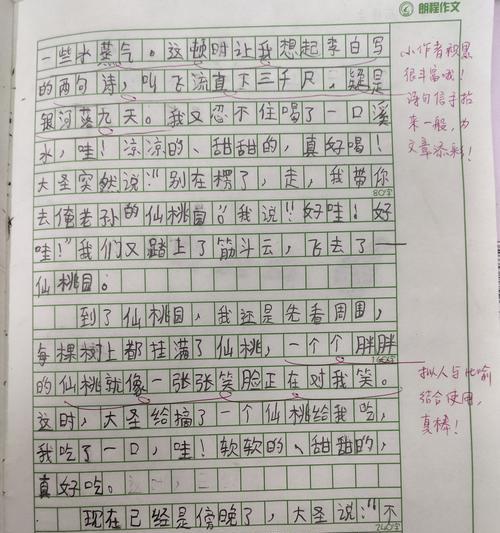 朗程作文
一些水蒸气。这顿时让我想起李白写
的两句诗，叫飞流直下三千尺，疑是
银河落九天。我又忍不住喝了一口溪
水，哇！凉凉的、甜甜的，真好喝！
大圣突然说：“别在楞了，走，我带你
80字
去俺老孙的仙桃园”。我说：“好哇！好
哇！”我们又踏上了筋斗云，飞去了——
仙桃园。
到了仙桃园，我还是先看周围，
每棵树上都挂满了仙桃，一个个胖胖
160字
的仙桃就像一张张笑脸正在对我笑。
这时，大圣给摘了一个仙桃给我吃，
我吃了一口，哇！软软的、甜甜的，
真好吃。
现在已经是傍晚了，大圣说：“不
240字
小作者积累
很丰富哦！
诗句信手拈
来一般，为
文章添彩！
拟人与比喻
结合使用，
真棒！